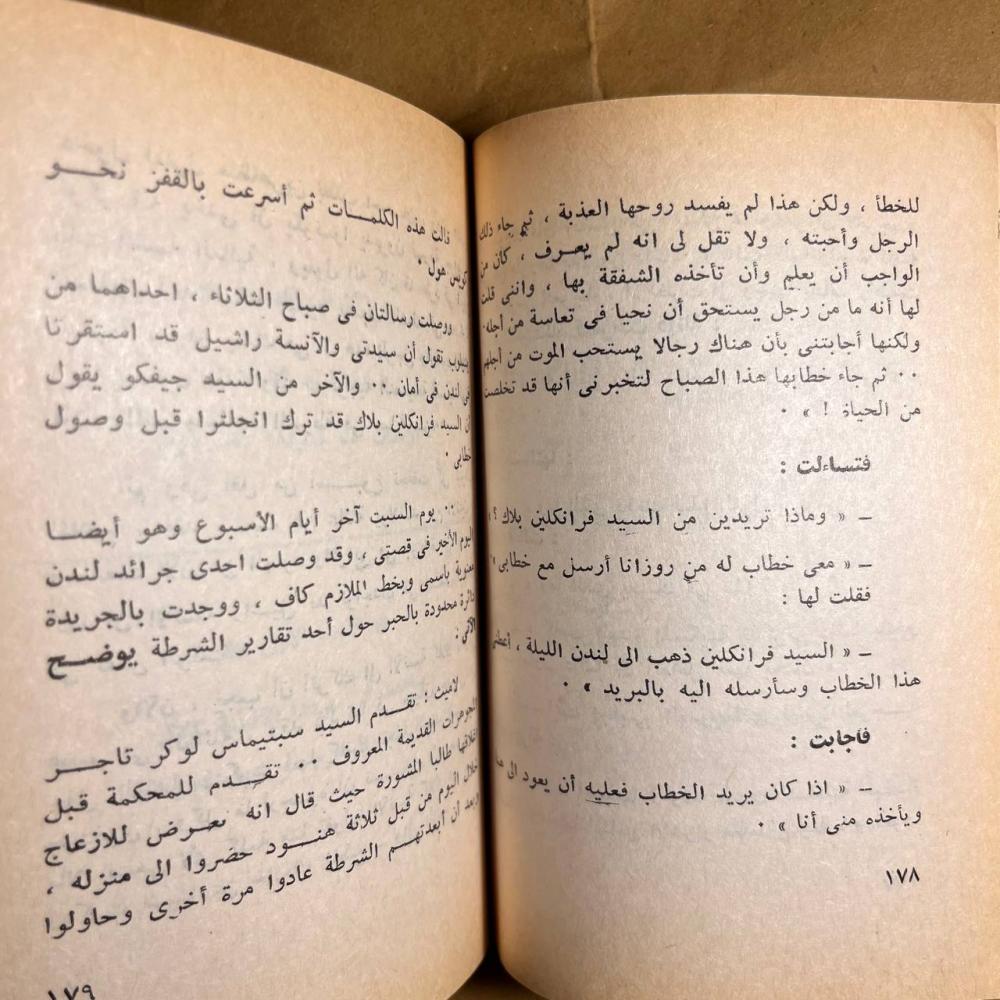 للخطأ ، ولكن هذا لم يفسد روحها العذبة ، ثم جاء ذلك
الرجل وأحبته ، ولا تقل لى انه لم يعرف ، كان من
الواجب أن يعلم وأن تأخذه الشفقة بها ، واننى قلت
لها أنه ما من رجل يستحق أن نحيا فى تعاسة من أجله
ولكنها أجابتنى بأن هناك رجالا يستحب الموت من أجلهم
٠٠ ثم جاء خطابها هذا الصباح لتخبرنى أنها قد تخلصت
من الحياة ! » ٠
فتساءلت :
ــ « وماذا تريدين من السيد فرانكلين بلاك ؟ »
ــ « معى خطاب له من روزانا أرسل مع خطابى »
فقلت لها :
ــ « السيد فرانكلين ذهب الى لندن الليلة ، أعطنى
هذا الخطاب وسأرسله اليه بالبريد » ٠
فأجابت :
ــ « اذا كان يريد الخطاب فعليه أن يعود الى
ويأخذه منى أنا » ٠
١٧٨
قالت هذه الكلمـــات ثم أسرعت بالقفز نحـــو
هول ٠
ووصلت رسالتان فى صباح الثلاثاء ، احداهما من
تقول أن سيدتى والآنسة راشيل قد استقرتا
فى لندن فى أمان ٠٠ والآخر من السيد جيفكو يقول
ان السيد فرانكلين بلاك قد ترك انجلترا قبل وصول
خطابى ٠
٠٠ يوم السبت آخر أيام الأسبوع وهو أيضـــا
اليوم الأخير فى قصتى ، وقد وصلت احدى جرائد لندن
معنونة باسمى وبخط الملازم كاف ، ووجدت بالجريدة
دائرة محدودة بالحبر حول أحد تقارير الشرطة يوضـــح
الآتى :
لامبث : تقـــدم السيد سبتيماس لوكر تاجـــر
المجوهرات القديمة المعروف ٠٠ تقـــدم للمحكمة قبل
اغلاقها طالبا المشورة حيث قال انه تعـــرض للازعاج
خلال اليوم من قبل ثلاثة هنـــود حضروا الى منزله ،
وبعد أن أبعدتهـــم الشرطة عادوا مرة أخرى وحاولوا
١٧٩